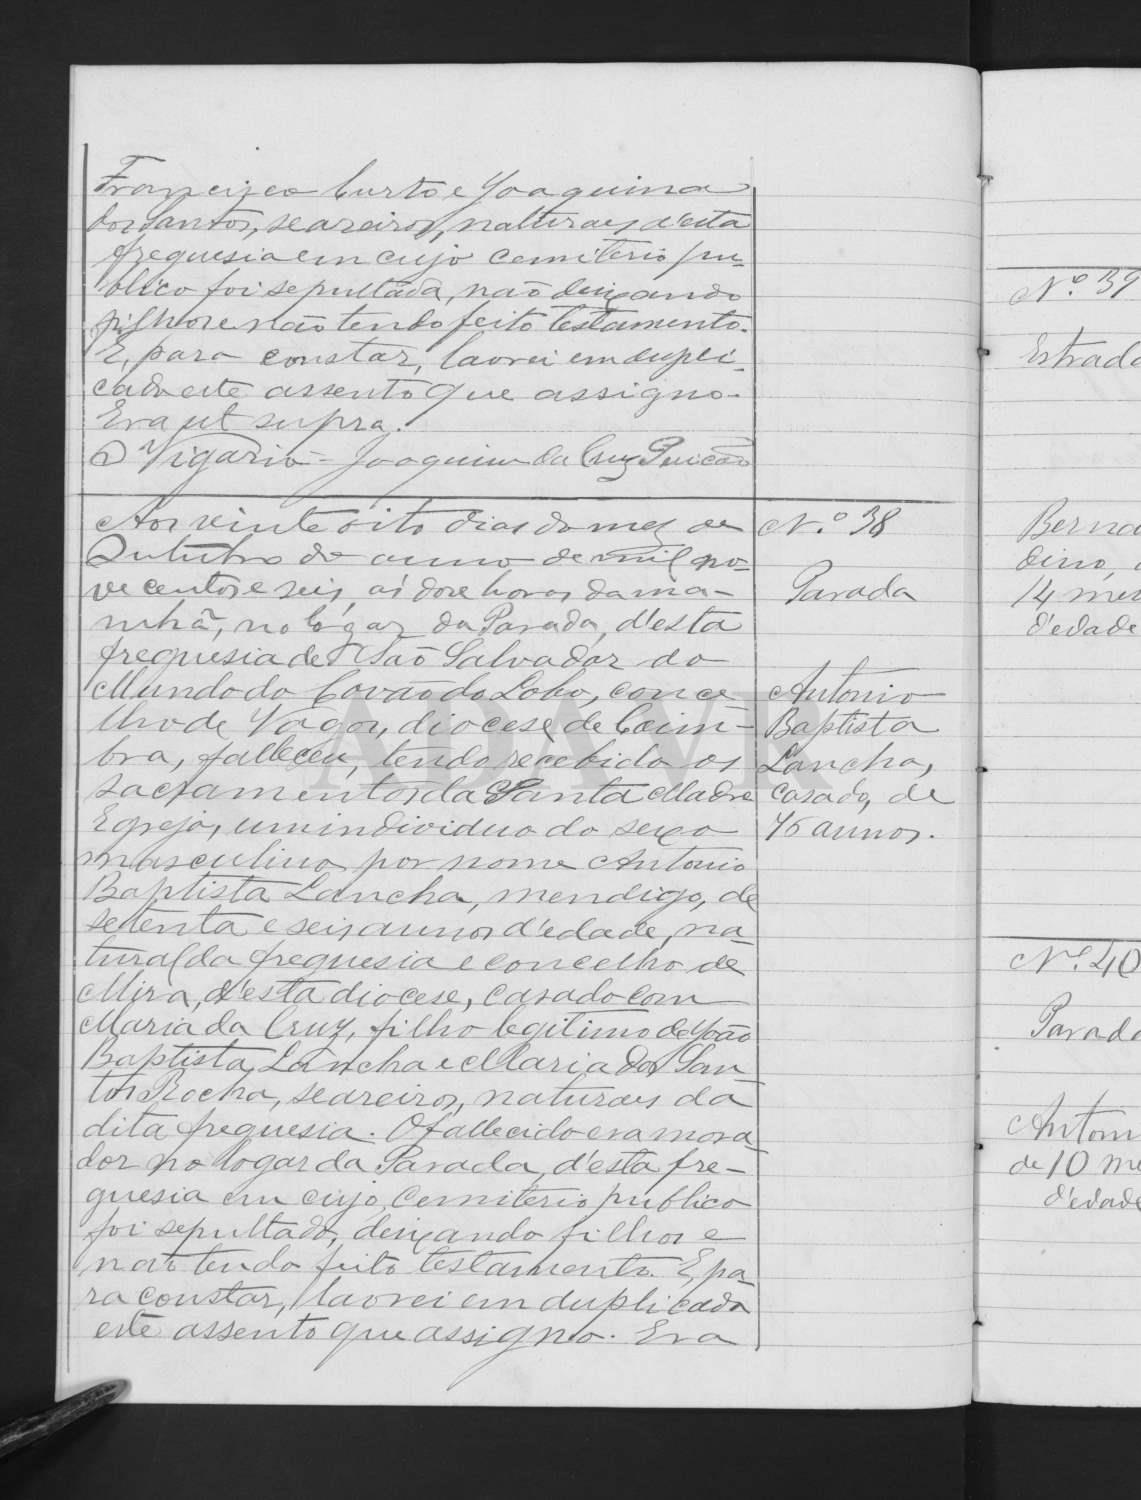 Francisco Curto e Joaquina
dos Santos, seareiros, naturaes d'esta
freguesia em cujo cemiterio pu-
blico foi sepultada, não deixando
filhos e não tendo feito testamento.
E, para constar, lavrei em dupli-
cado este assento que assigno.
Era ut supra.
O Vigario - Joaquim da Cruz
Aos vinte oito dias do mez de
Outubro do anno de mil no-
vecentos e seis, ás doze horas da ma-
nhã, no logar da Parada, d'esta
freguesia de São Salvador do
Mundo do Covão do Lobo, conce-
lho de Vagos, diocese de Coim-
bra, falleceu, tendo recebido os
sacramentos da Santa Madre
Egreja, um individuo do sexo
masculino por nome Antonio
Baptista Lancha, mendigo, de
setenta e seis annos d'edade, na-
tural da freguesia e concelho de
Mira, d'esta diocese, casado com
Maria da Cruz, filho legitimo de João
Baptista Lancha e Maria dos San-
tos Rocha, seareiros, naturaes da
dita freguesia. O fallecido era mora-
dor no logar da Parada, d'esta fre-
guesia em cujo cemiterio publico
foi sepultado, deixando filhos e
não tendo feito testamento. E, pa-
ra constar, lavrei em duplicado
este assento que assigno. Era
N.º 38
Parada
Antonio
Baptista
Lancha,
casado, de
76 annos.
N.º 39
Estrada
Berna
dino,
14 mez
d'edade
N.º 40
Parada
Antoni
de 10 me
d'edade
ADAVR